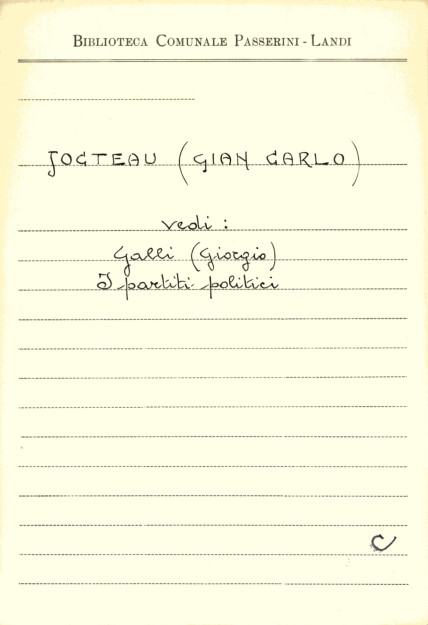 BIBLIOTECA COMUNALE PASSERINI - LANDI
JOCTEAU (GIAN CARLO)
vedi :
Galli (Giorgio)
I partiti politici
C